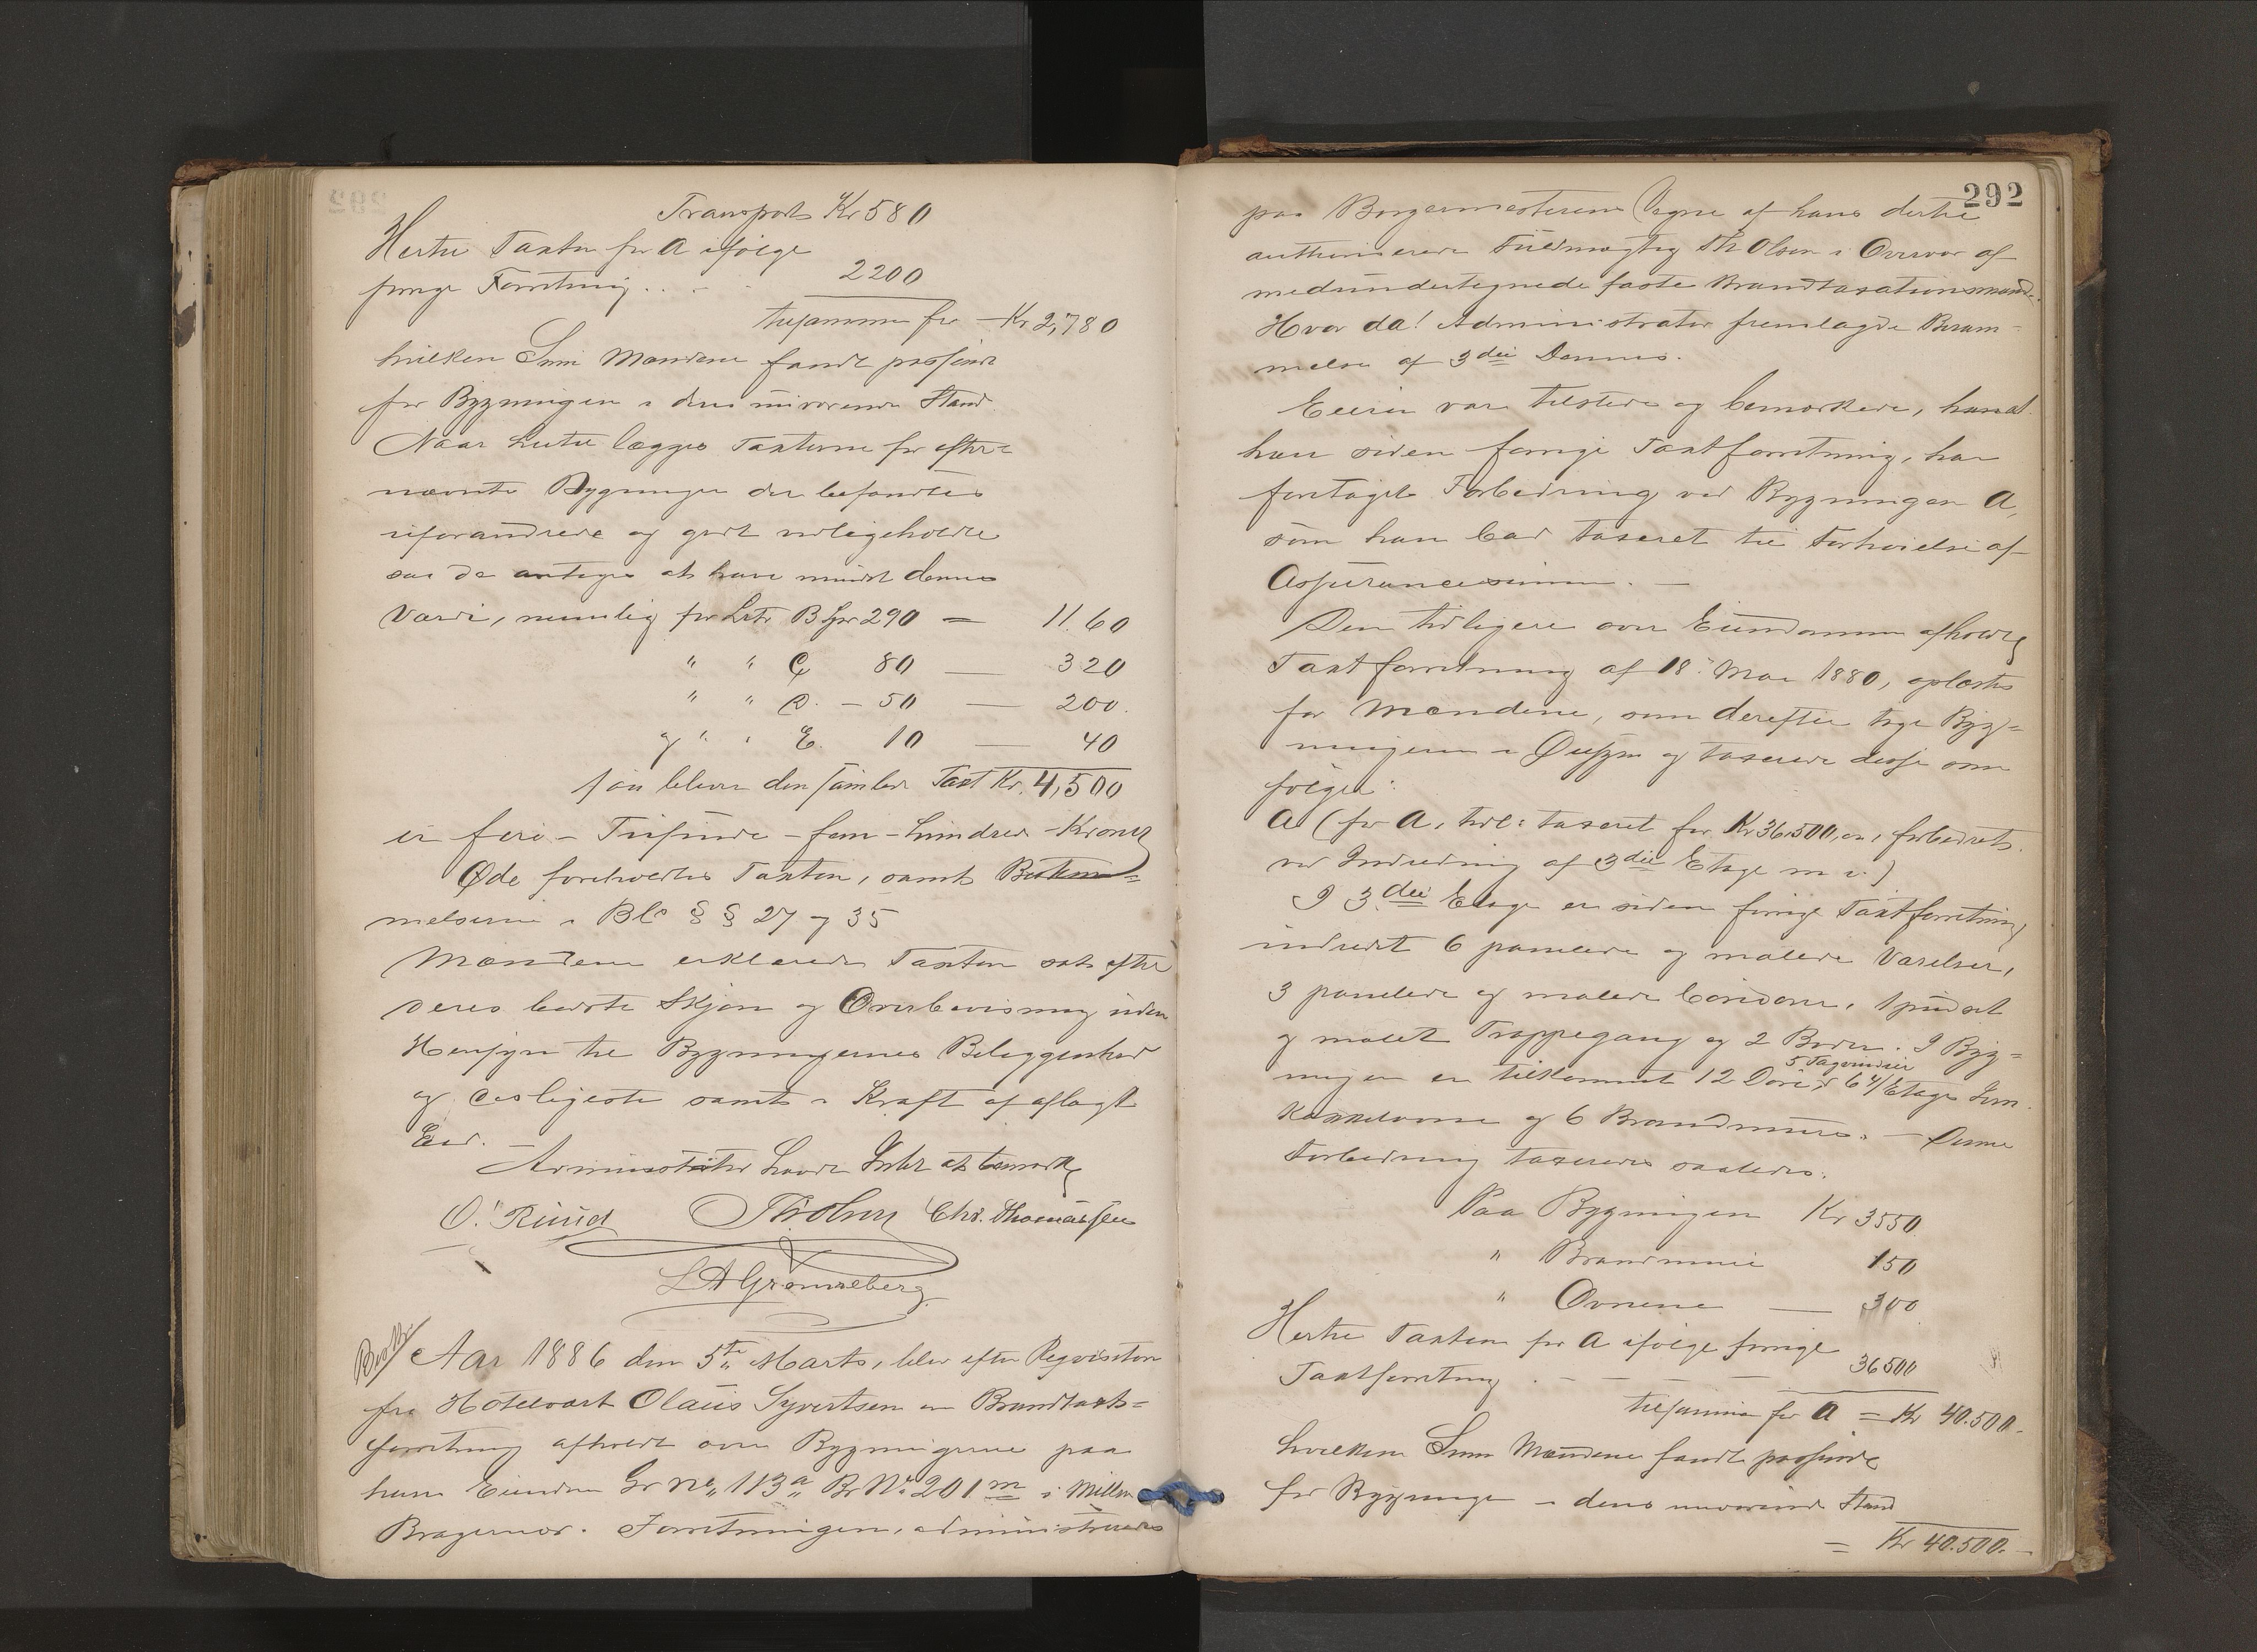 Transport Kr 580
Hertil Taxten for A ifølge
forrige Forretning . . - 2200
tilsammen for - Kr 2,780
hvilken Sum Mændene fandt passende
for Bygningen i dens nuværende Stand
Naar hertil lægges Taxterne for efter-
nævnte Bygninger der befandtes
uforandrede og godt vedligeholdte
saa de antages at have mindst denne
Værdi, nemlig for Litr B Spd 290 = 11.60
" " C 80 — 320
" " D. - 50 — 200.
og " " E. 10 — 40
saa bliver den samlede Taxt Kr. 4,500
er fire - Tusinde - fem - hundrede - Kroner
Øde foreholdtes Taxten, samt Bestem=
melserne i Bl. § § 27 og 35
Mændene erklærede Taxten sat efter
deres bedste Skjøn og Overbevisning uden
Hensyn til Bygningernes Beliggenhed
og desligeste samt i Kraft af aflagt
Eed. -
Administrator havde Intet at bemærke
O. Ruud Th Olsen Chr. Thomassen
L A Grønneberg
Aar 1886 den 5te Marts, blev efter Reqvisition
fra Hotelvært Olaus Syvertsen en Brandtaxt=
forretning afholdt over Bygningerne paa
hans Eiendom Gr No 113a Br No 201 m i Mellem
Bragernes. Forretningen administreredes
292
paa Borgermesterens Vegne af hans dertil
authoriserede Fuldmægtig Th Olsen i Overvær af
medundertegnede faste Brandtaxationsmænd.
Hvor da! Administrator fremlagde Beram-
melse af 3die Dennes.
Eieren var tilstede og bemærkede, at
han siden forrige Taxtforretning, har
foretaget Forbedring ved Bygningen A,
som han bad taxeret til Forhøielse af
Assurancesummen. —
Den tidligere over Eiendommen afholdte
Taxtforretning af 18. Mai 1880, oplæstes
for Mændene, som derefter toge Byg=
ningerne i Øiesyn og taxerede disse som
følger:
A (for A, tidl: taxeret for Kr 36,500, er, forbedret
ved Indredning af 3die Etage m v.)
I 3die Etage er siden forrige Taxtforretning
indredt 6 panelede og malede Værelser,
3 panelede og malede Coridorer, 1 pudset
og malet Trappegang og 2 Boder. I Byg=
ningen er tilkommet 12 Døre, 5 Tagvinduer 6 4/Etages Jern
Kakkelovne og 6 Brandmure. — Denne
Forbedring taxeredes saaledes:
Paa Bygningen Kr 3550
" Brandmure 150
" Ovnene — 300
Hertil Taxten for A ifølge forrige
Taxtforretning . - - - — 36500
tilsammen for A = Kr 40.500.
hvilken Sum Mændene fandt passende
for Bygningen i dens nuværende Stand
= Kr 40.500. -